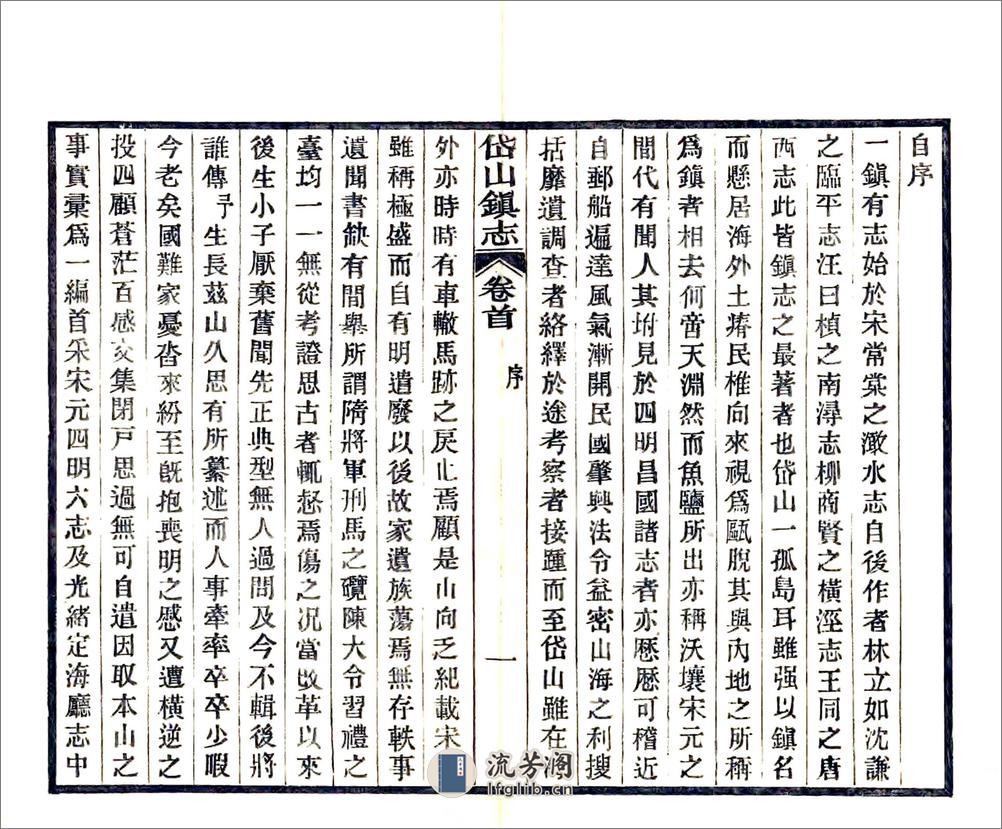 自序
一鎮有志始於宋常棠之澉水志自後作者林立如沈謙
之臨平志汪曰楨之南潯志柳商賢之橫涇志王同之唐
西志此皆鎮志之最著者也岱山一孤島耳雖强以鎮名
而懸居海外土瘠民椎向來視爲甌脫其與內地之所稱
爲鎮者相去何啻天淵然而魚鹽所出亦稱沃壤宋元之
間代有聞人其坿見於四明昌國諸志者亦歷歷可稽近
自郵船遍達風氣漸開民國肇興法令益密山海之利搜
括靡遺調查者絡繹於途考察者接踵而至岱山雖在海
岱山鎮志 卷首 序 一
外亦時時有車轍馬跡之戾止焉顧是山向乏紀載宋元
雖稱極盛而自有明遣廢以後故家遺族蕩焉無存軼事
遺聞書缺有間舉所謂隋將軍刑馬之礮陳大令習禮之
臺均一一無從考證思古者輒愁焉傷之况當改革以來
後生小子厭棄舊聞先正典型無人過問及今不輯後將
誰傳予生長茲山久思有所纂述而人事牽率卒卒少暇
今老矣國難家憂沓來紛至旣抱喪明之感又遭橫逆之
投四顧蒼茫百感交集閉戸思過無可自遣因取本山之
事實彙爲一編首采宋元四明六志及光緒定海廳志中
流芳阁
lfglib.cn